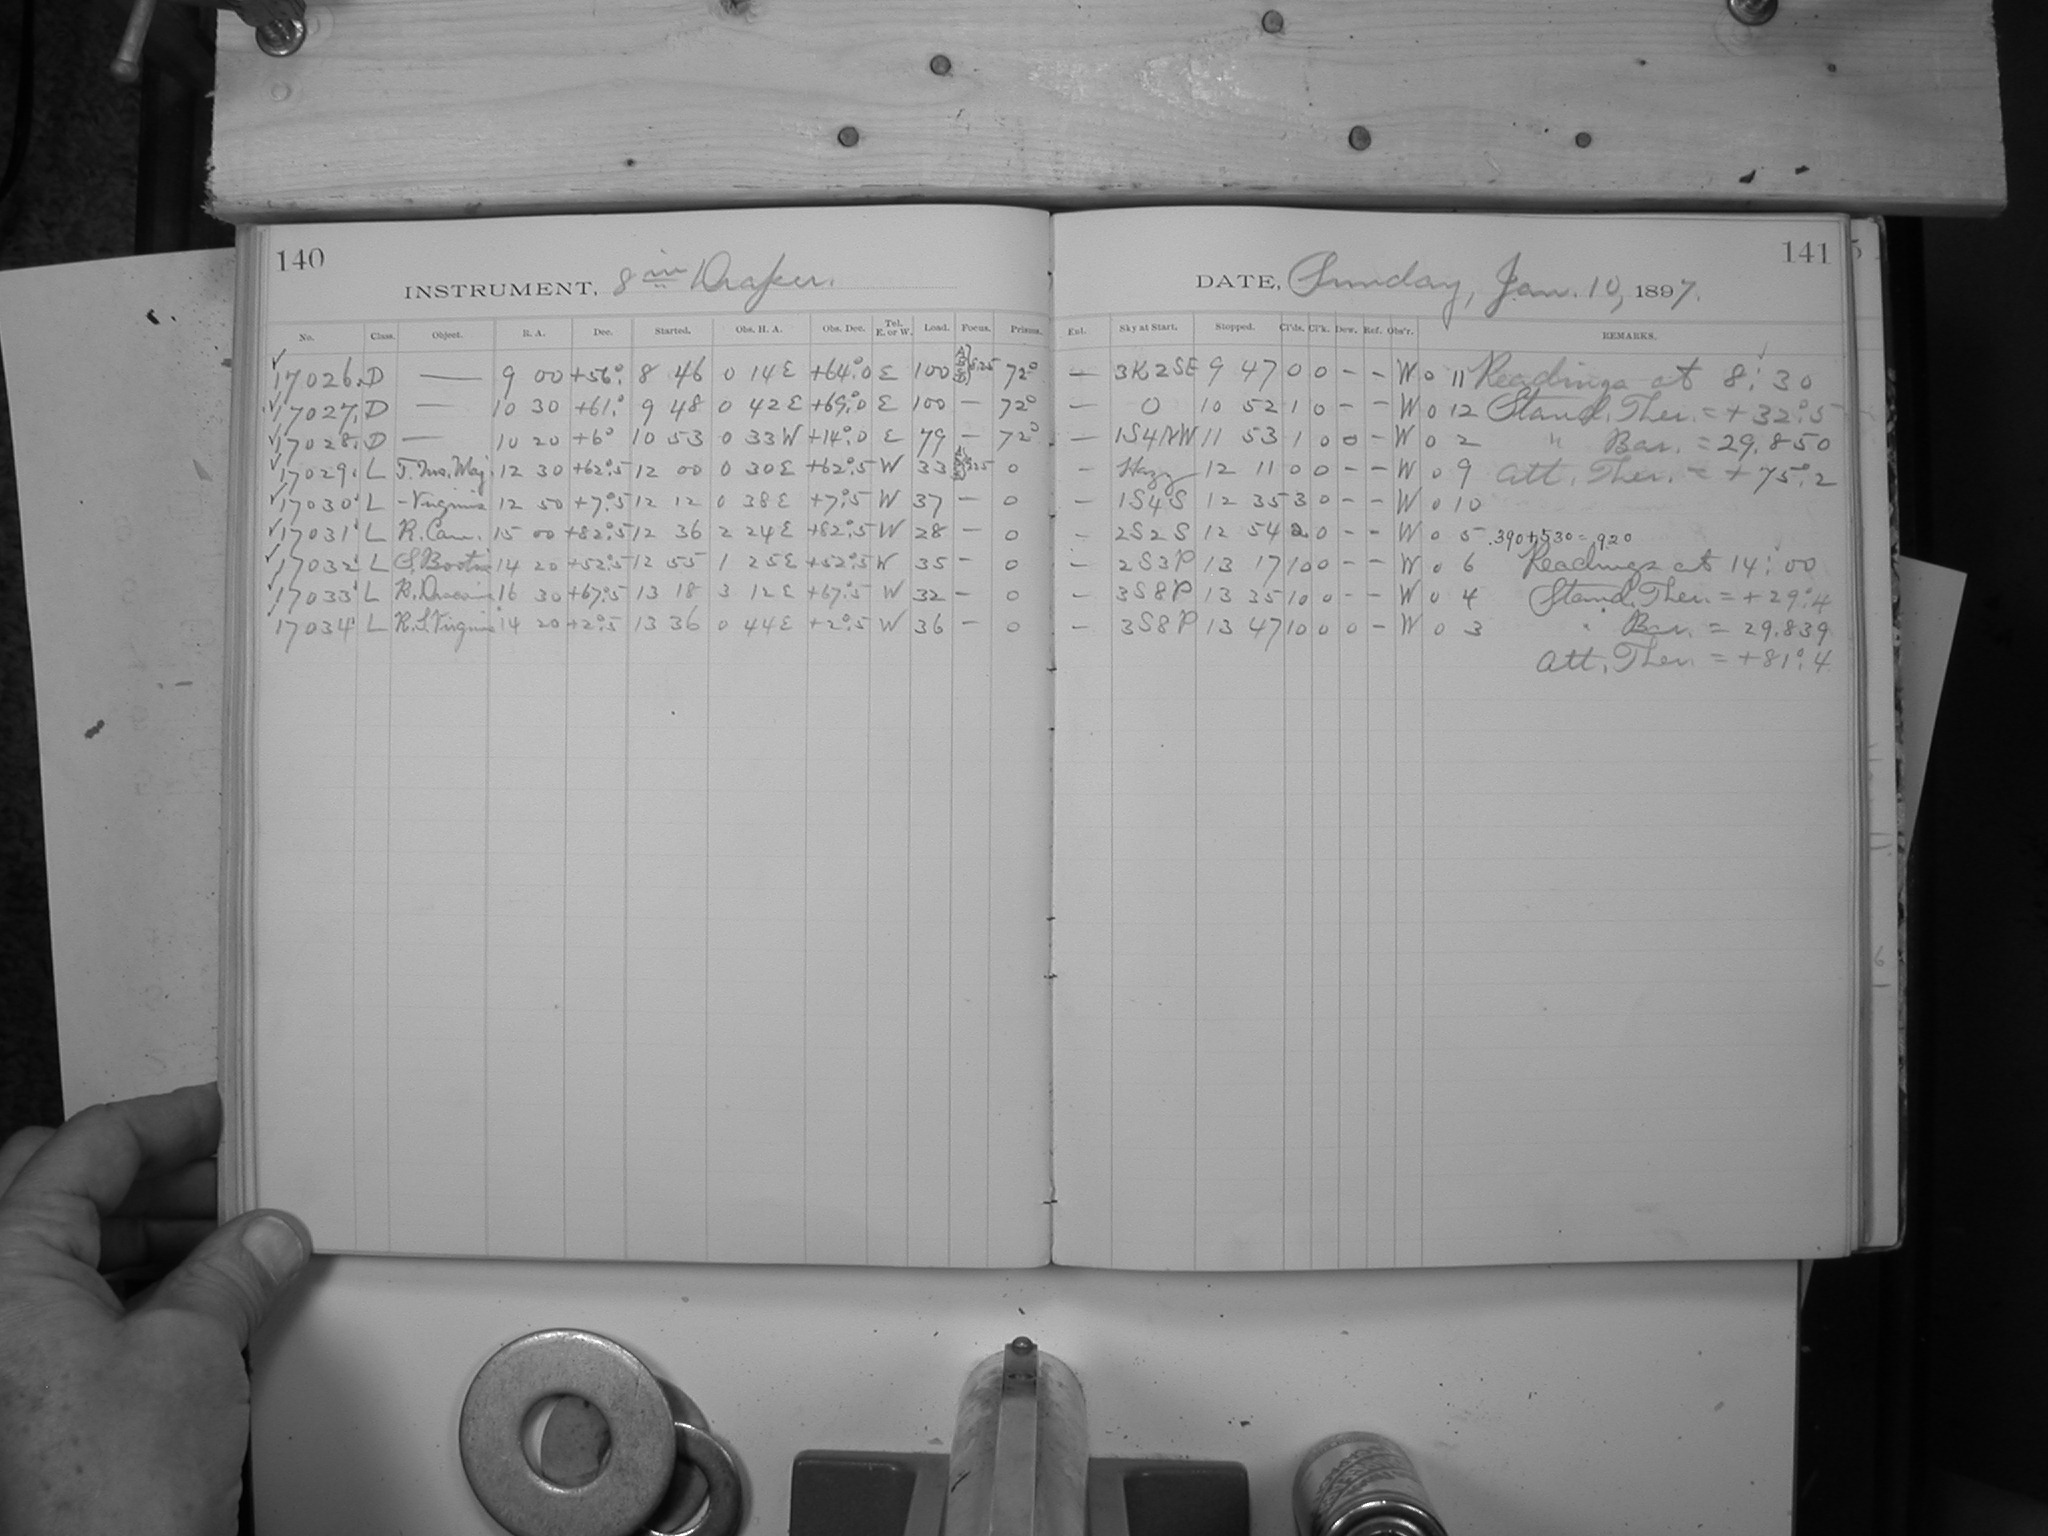 140
INSTRUMENT, 8 in Draper.
No. Class. Object. R. A. Dec. Started. Obs. H. A. Obs. Dec. Tel. E. or W. Load. Focus. Prisms.
17026. D — 9 00 +56° 8 46 0 14 E +64°.0 E 100 8.25 72°
17027. D — 10 30 +61° 9 48 0 42 E +69°.0 E 100 — 72°
17028. D — 10 20 +6° 10 53 0 33 W +14°.0 E 79 — 72°
17029. L T. Urs. Maj. 12 30 +62°.5 12 00 0 30 E +62°.5 W 33 0
17030. L – Virginis 12 50 +7°.5 12 12 0 38 E +7°.5 W 37 — 0
17031. L R. Cam. 15 00 +82°.5 12 36 2 24 E +82°.5 W 28 — 0
17032. L S. Bootis 14 20 +52°.5 12 55 1 25 E +52°.5 W 35 — 0
17033. L R. Draconis 16 30 +67°.5 13 18 3 12 E +67°.5 W 32 — 0
17034. L R.S. Virginis 14 20 +2°.5 13 36 0 44 E +2°.5 W 36 — 0
141
DATE, Sunday, Jan. 10, 1897.
Enl. Sky at Start. Stopped. Cl'ds. Cl'k. Dew. Ref. Obs'r. REMARKS.
— 3K2SE 9 47 0 0 – – W 0 11 Readings at 8h 30
— 0 10 52 1 0 – – W 0 12 Stand. Ther. = +32°.5
— 1S4NW 11 53 1 0 0 – W 0 2 " Bar. = 29.850
— Hazy 12 11 0 0 – – W 0 9 Att. Ther. = +75°.2
— 1S4S 12 35 3 0 – – W 0 10
— 2S2S 12 54 2 0 – – W 0 5 .390+.530=.920
— 2S3P 13 17 10 0 – – W 0 6 Readings at 14h 00
— 3S8P 13 35 10 0 – – W 0 4 Stand. Ther. = +29°.4
— 3S8P 13 47 10 0 0 – W 0 3 " Bar. = 29.839
Att. Ther. = +81°.4